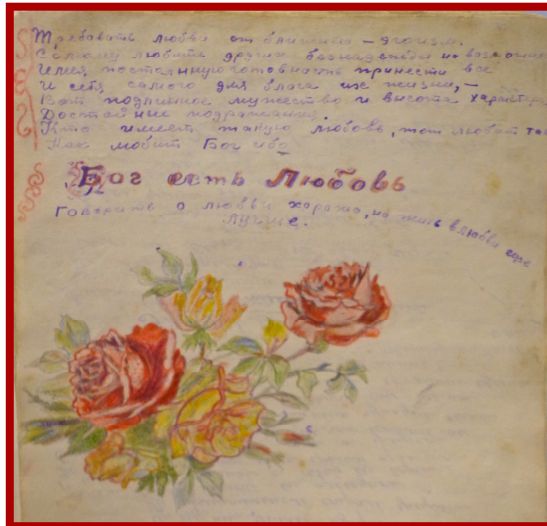 Требовать любви от ближних – эгоизм.
Самому любить других без надежды на
Имея постоянную готовность принести все
и себя самого для блага их жизни, –
Вот подлинное мужество и высота характера
Достойные подражания.
Кто имеет такую любовь, тот любит так
Как любит Бог ибо
Бог есть Любовь
Говорить о любви хорошо, но жить в любви еще
лучше.